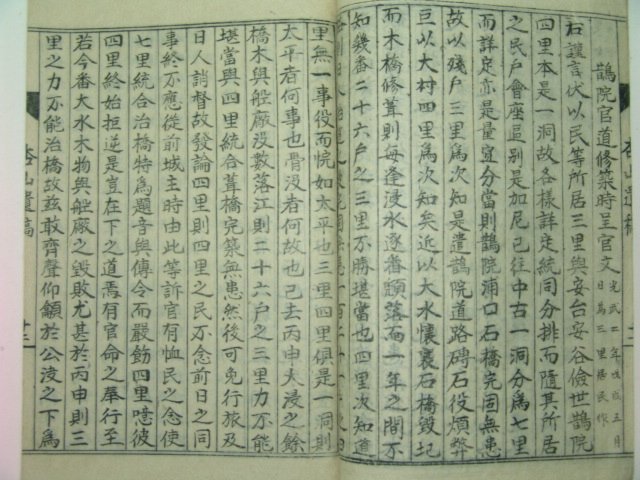 鵲院官道修築時呈官文 光武二年戊戌五月日為三里居民作
右謹言伏以民等所居三里與安台安谷儉世鵲院
四里本是一洞故各樣詳定統同分排而隨其所居
之民戶會座區別是加尼已往中古一洞分為七里
而詳定亦是量宜分當則鵲院浦口石橋完固無患
故以殘戶三里為次知是遣鵲院道路磚石役煩弊
巨以大村四里為次知矣近以大水懷襄石橋毀圮
而木橋修葺則每逢浸水逐番頹落而一年之間不
知幾番二十六戶之三里不勝堪當也四里次知道
里無一事役而恍如太平也三里四里俱是一洞則
太平者何事也汨沒者何故也已去丙申大浸之餘
橋木與舩廠沒數落江則二十六戶之三里力不能
堪當與四里統合葺橋完築無患然後可免行旅及
日人誚督故發論四里則四里之民不念前日之同
事終不應從前城主時由此等訴官有恤民之念使
七里統合治橋特為題音與傳令而嚴飭四里噫彼
四里終始拒逆是豈在下之道焉有官命之舉行至
若今番大水木物與舩廠之毀敗尤甚於丙申則三
里之力不能治橋故玆敢齊聲仰籲於公洨之下為
杏山遺稿